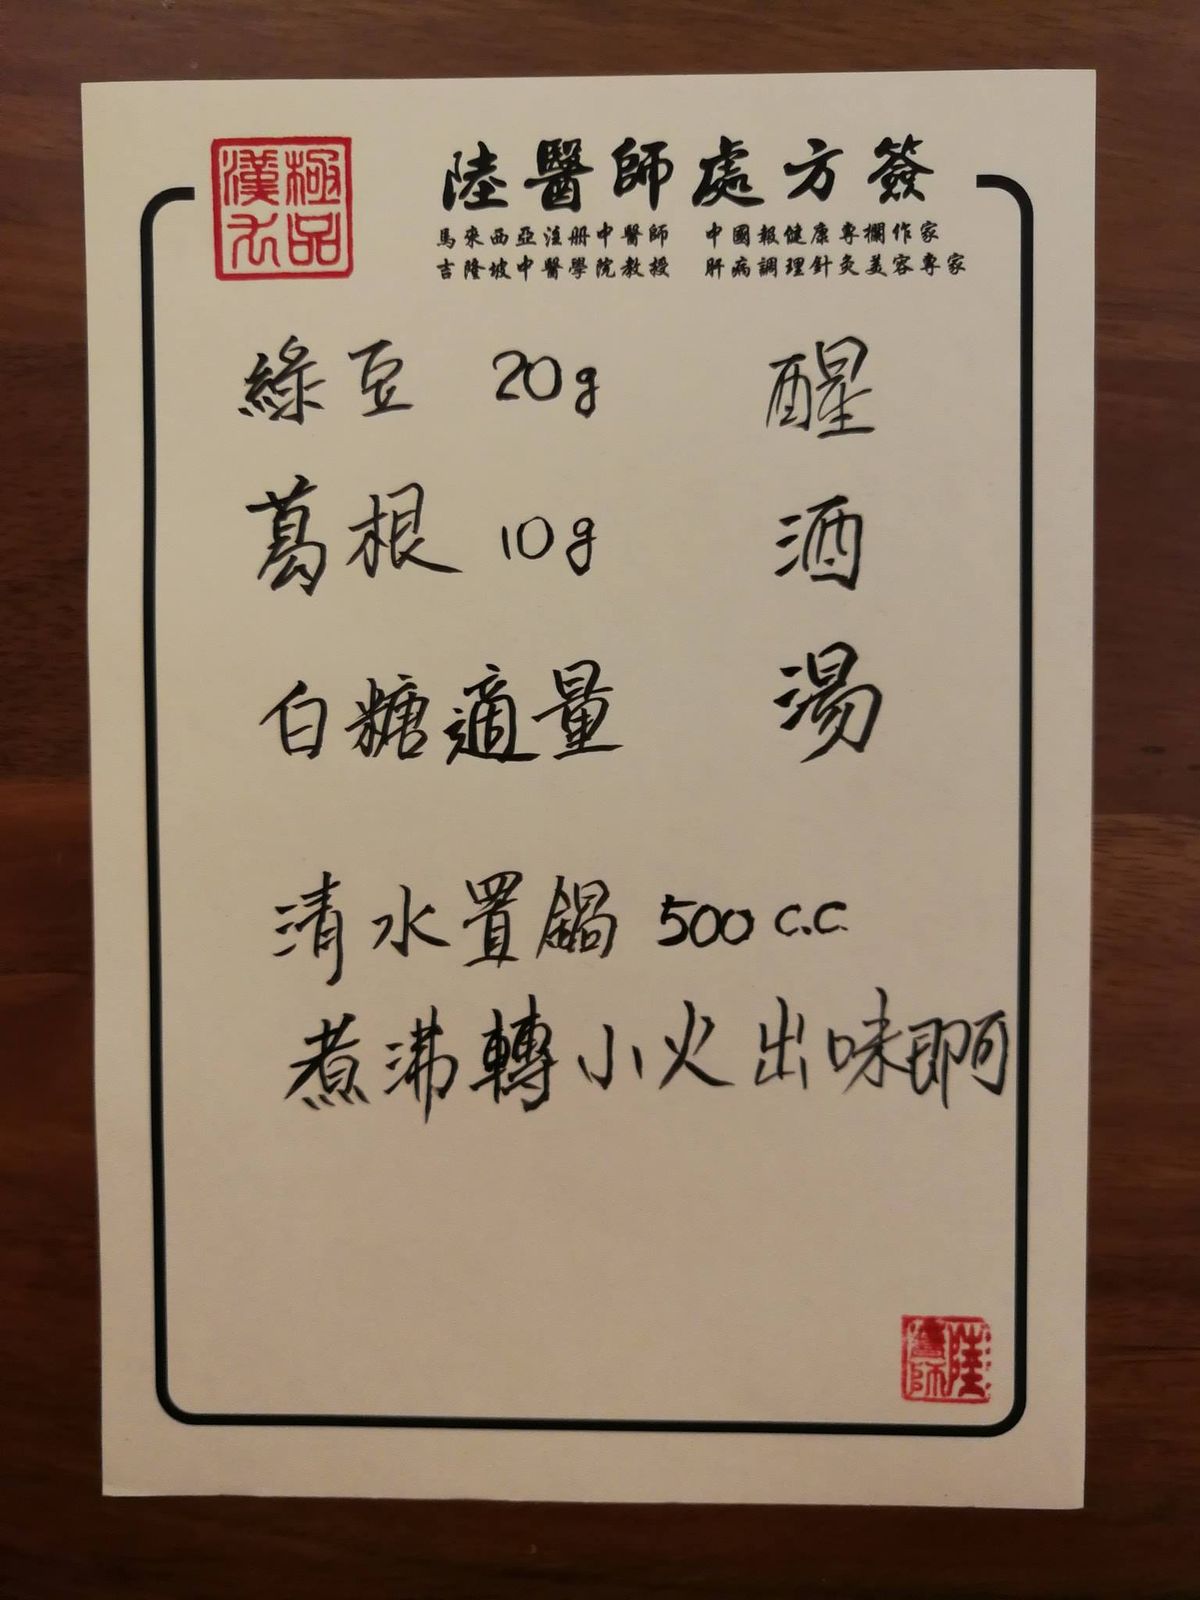 極品漢方
陸醫師處方簽
馬來西亞注册中醫師 中國報健康專欄作家
吉隆坡中醫學院教授 肝病調理針灸美容專家
綠豆 20g
葛根 10g
白糖適量
醒酒湯
清水置鍋 500 c.c.
煮沸轉小火出味即可
陸醫師